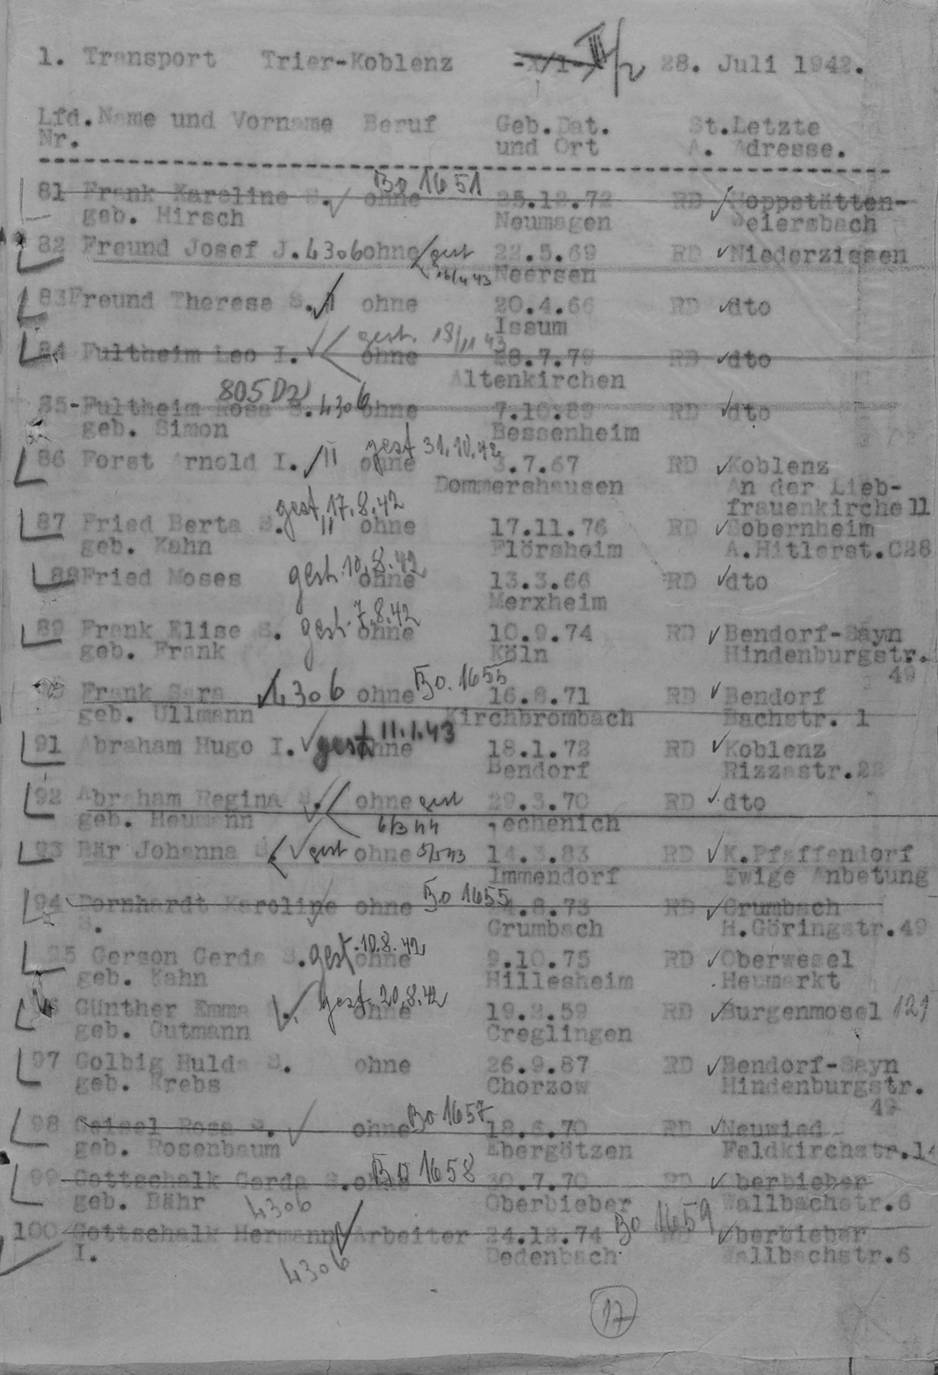 1. Transport Trier-Koblenz III/2 28. Juli 1942.
Lfd. Name und Vorname Beruf Geb.Dat. St. Letzte
Nr. und Ort A. Adresse.
81 Frank Karoline S. ohne Bo 1651 25.12.72 RD Hoppstätten-
geb. Hirsch Neumagen Weiersbach
82 Freund Josef J. 4306 ohne gest 22.5.69 RD Niederzissen
Neersen
83 Freund Therese S. ohne 20.4.66 RD dto
Issum
84 Fultheim Leo I. ohne gest. 18/11 43 28.7.79 RD dto
Altenkirchen
85- Fultheim Rosa S. 805 Dz 4306 ohne 7.10.89 RD dto
geb. Simon Bessenheim
86 Forst Arnold I. II ohne gest 31.10.42 3.7.67 RD Koblenz
Dommershausen An der Lieb-
frauenkirche 11
87 Fried Berta S. gest. 17.8.42 ohne 17.11.76 RD Sobernheim
geb. Kahn Flörsheim A.Hitlerst.C28
88 Fried Moses gest. 10.8.42 ohne 13.3.66 RD dto
Merxheim
89 Frank Elise S. gest. 7.8.42 ohne 10.9.74 RD Bendorf-Sayn
geb. Frank Köln Hindenburgstr.
49
Frank Sara 4306 ohne Bo. 1655 16.8.71 RD Bendorf
geb. Ullmann Kirchbrombach Bachstr. 1
91 Abraham Hugo I. gest. 11.1.43 ohne 18.1.72 RD Koblenz
Bendorf Rizzastr.22
92 Abraham Regina S. ohne gest 29.3.70 RD dto
geb. Heumann 6/3 44 Lechenich
93 Bär Johanna S. gest ohne 5/5 43 14.3.83 RD K.Pfaffendorf
Immendorf Ewige Anbetung
94 Dornhardt Karoline ohne Bo 1655 4.8.73 RD Grumbach
S. Grumbach H.Göringstr.49
95 Gerson Gerda S. gest. 10.8.42 ohne 9.10.75 RD Oberwesel
geb. Kahn Hillesheim Heumarkt
96 Günther Emma gest. 20.8.42 ohne 19.2.59 RD Burgenmosel 121
geb. Gutmann Creglingen
97 Golbig Hulda S. ohne 26.9.87 RD Bendorf-Sayn
geb. Krebs Chorzow Hindenburgstr.
49
98 Geisel Rosa S. ohne Bo 1657 18.6.70 RD Neuwied
geb. Rosenbaum Ebergötzen Feldkirchstr.1
99 Gottschalk Gerda S. ohne Bo 1658 30.7.70 RD Oberbieber
geb. Bähr 4306 Oberbieber Wallbachstr.6
100 Gottschalk Hermann Arbeiter 24.12.74 Bo 1659 RD Oberbieber
I. 4306 Dedenbach Wallbachstr.6
17